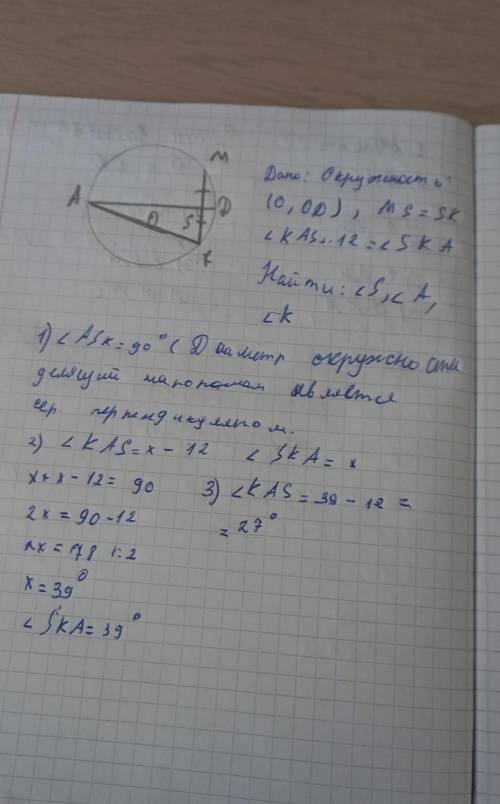 M
A
D
O
S
K
Дано: Окружность
(O, OD), MS = SK
∠KAS+12 = ∠SKA
Найти: ∠S, ∠A,
∠K
1) ∠ASK = 90° (Диаметр окружности
делящий напополам является
сер. перпендикуляром.
2) ∠KAS = x - 12 ∠SKA = x
x + x - 12 = 90
2x = 90 - 12
2x = 78 |:2
x = 39°
∠SKA = 39°
3) ∠KAS = 39 - 12 =
= 27°